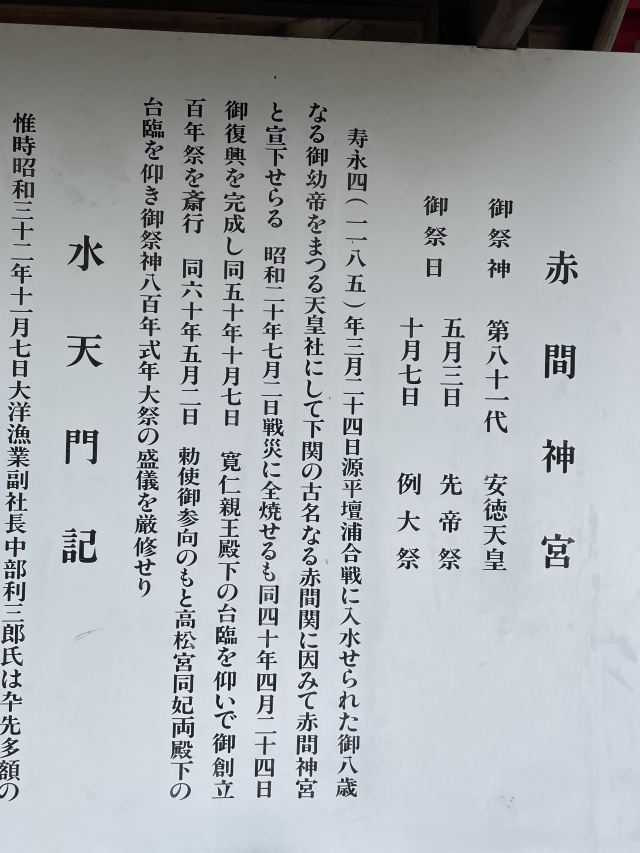 赤間神宮
御祭神　第八十一代　安徳天皇
御祭日　五月三日　先帝祭
十月七日　例大祭
寿永四(一一八五)年三月二十四日源平壇浦合戦に入水せられた御八歳
なる御幼帝をまつる天皇社にして下関の古名なる赤間関に因みて赤間神宮
と宣下せらる　昭和二十年七月二日戦災に全焼せるも同四十年四月二十四日
御復興を完成し同五十年十月七日　寛仁親王殿下の台臨を仰いで御創立
百年祭を斎行　同六十年五月二日　勅使御参向のもと高松宮同妃両殿下の
台臨を仰き御祭神八百年式年大祭の盛儀を厳修せり
水天門記
惟時昭和三十二年十一月七日大洋漁業副社長中部利三郎氏は卒先多額の